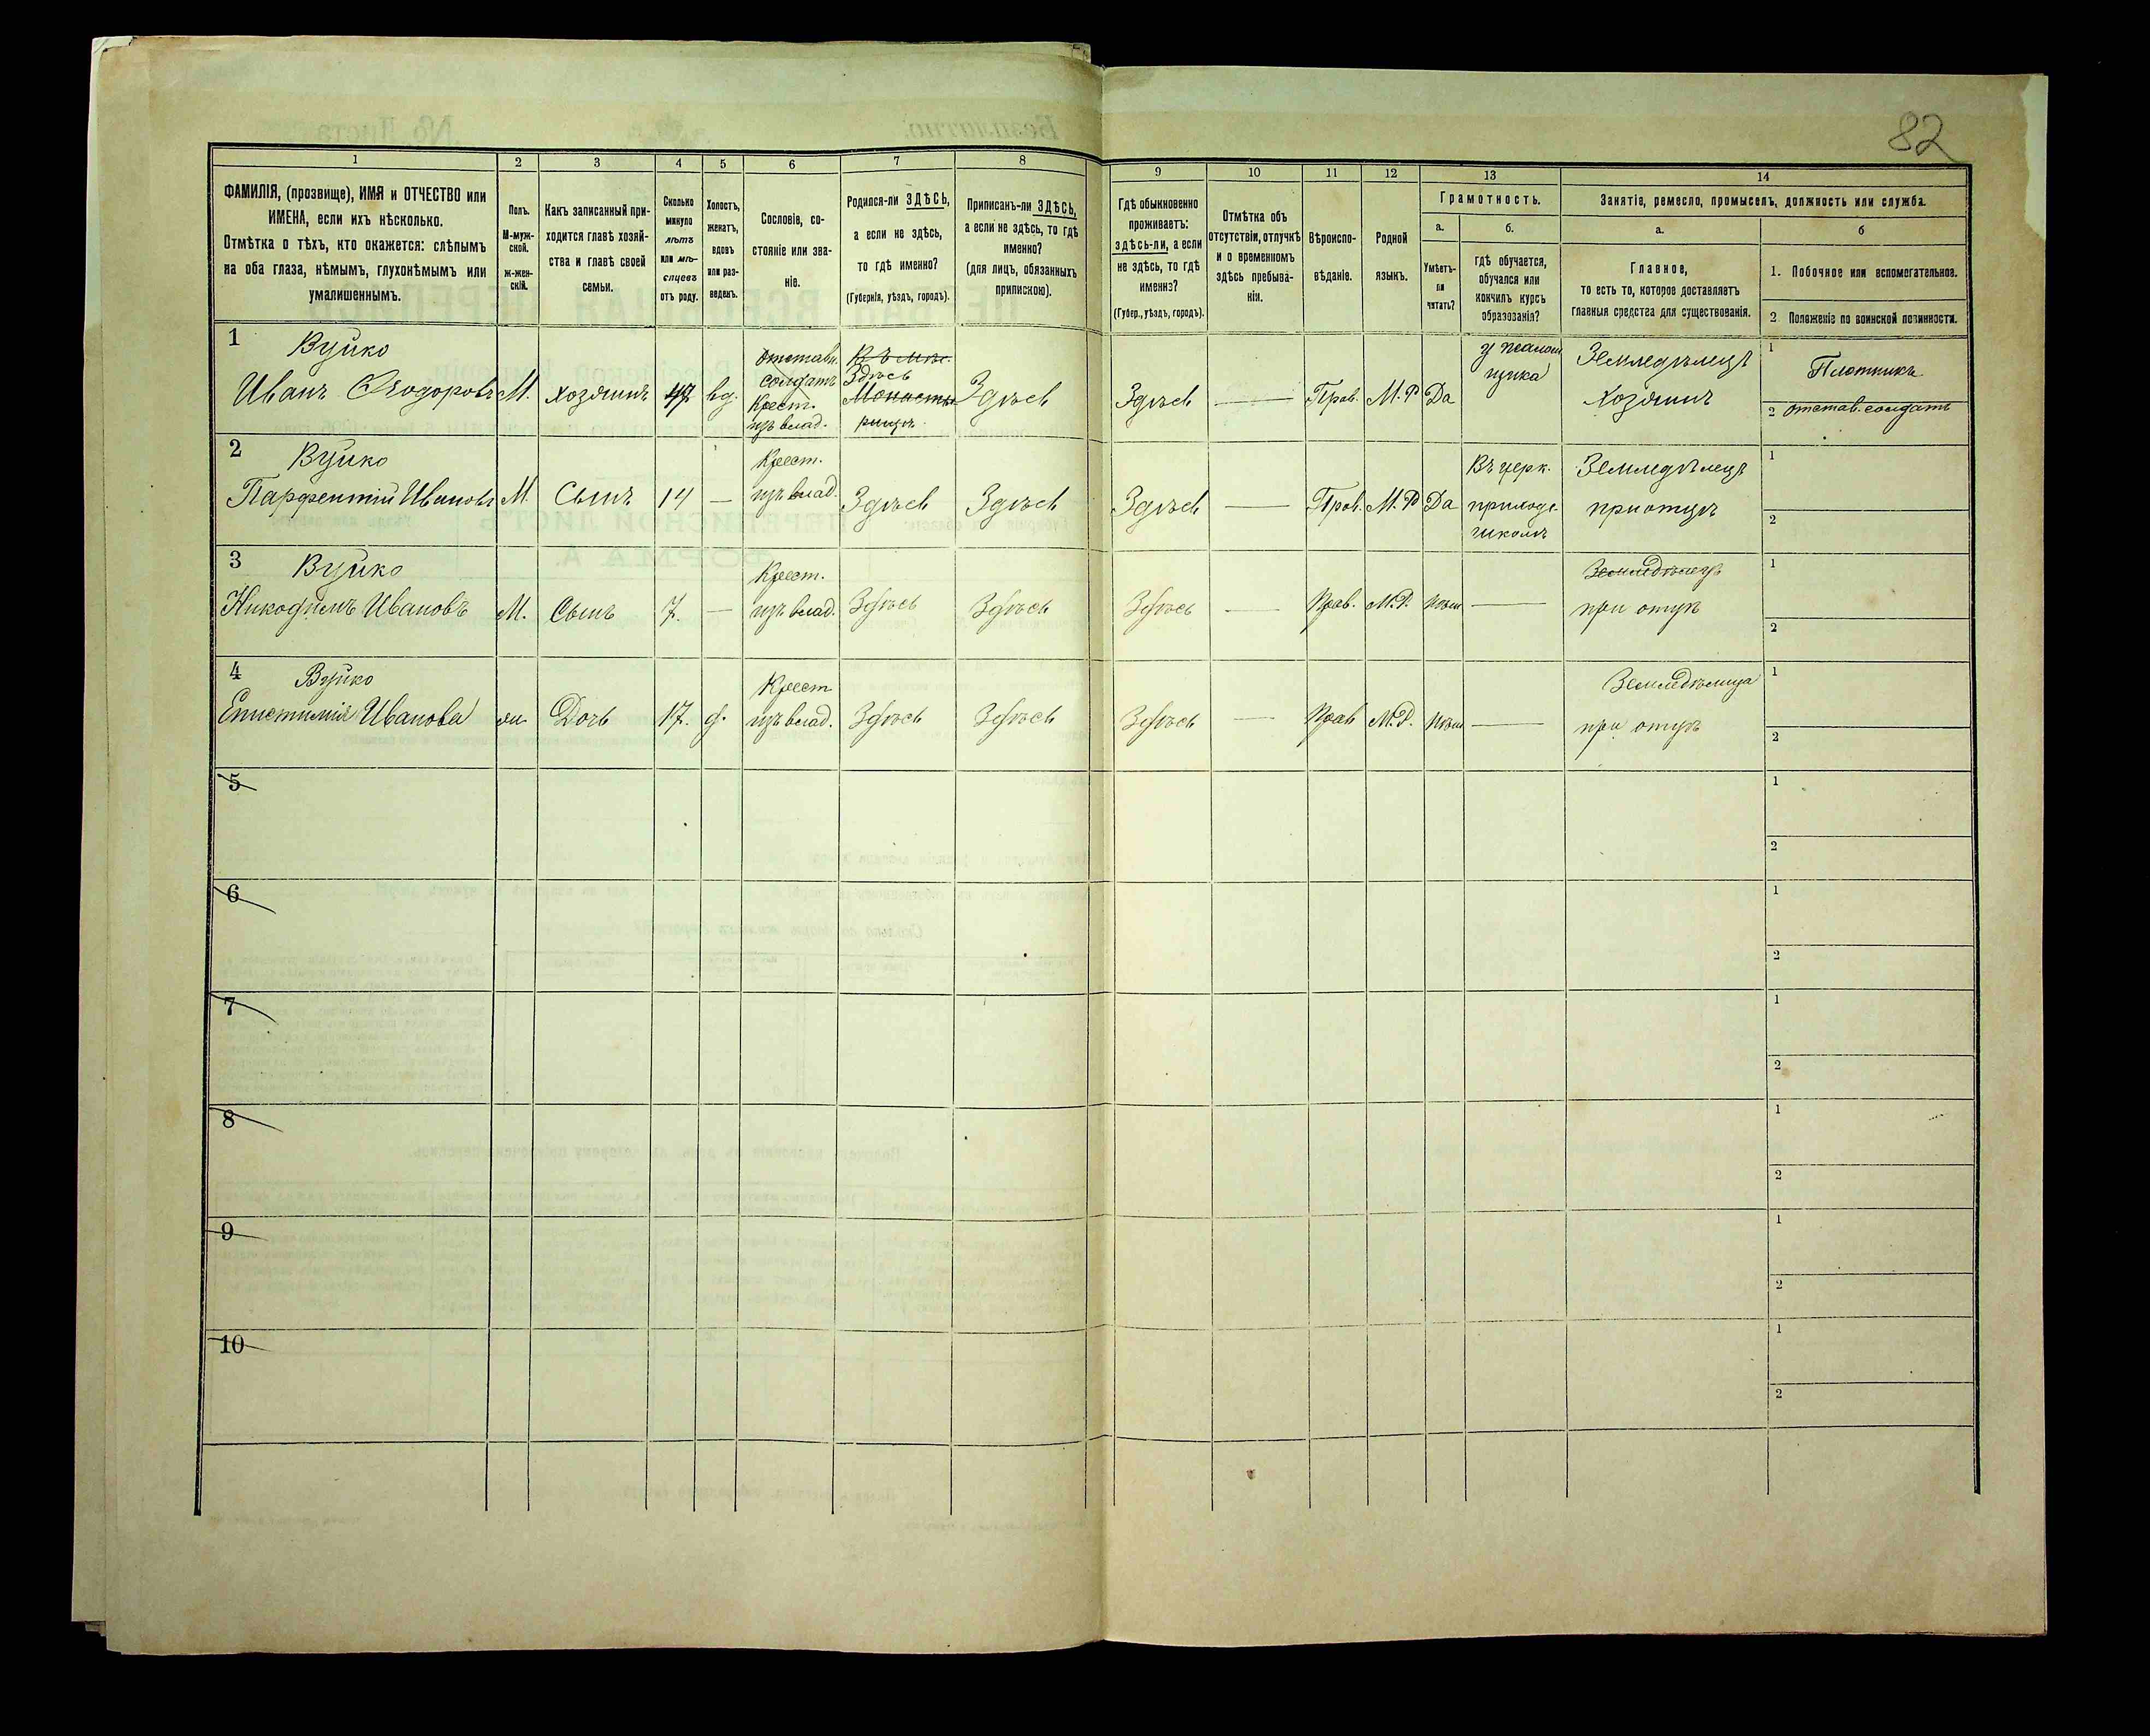 82
1 2 3 4 5 6 7 8 9 10 11 12 13 14
ФАМИЛІЯ, (прозвище), ИМЯ и ОТЧЕСТВО или
ИМЕНА, если ихъ нѣсколько.
Отмѣтка о тѣхъ, кто окажется: слѣпымъ
на оба глаза, нѣмымъ, глухонѣмымъ или
умалишеннымъ.
Полъ.
М-муж-
ской.
ж-жен-
скій.
Какъ записанный при-
ходится главѣ хозяй-
ства и главѣ своей
семьи.
Сколько
минуло
лѣтъ
или мѣ-
сяцевъ
отъ роду.
Холостъ,
женатъ,
вдовъ
или раз-
веденъ.
Сословіе, со-
стояніе или зва-
ніе.
Родился-ли ЗДѢСЬ,
а если не здѣсь,
то гдѣ именно?
(Губернія, уѣздъ, городъ).
Приписанъ-ли ЗДѢСЬ,
а если не здѣсь, то гдѣ
именно?
(для лицъ, обязанныхъ
припискою).
Гдѣ обыкновенно
проживаетъ:
здѣсь-ли, а если
не здѣсь, то гдѣ
именно?
(Губер., уѣздъ, городъ).
Отмѣтка объ
отсутствіи, отлучкѣ
и о временномъ
здѣсь пребыва-
ніи.
Вѣроиспо-
вѣданіе.
Родной
языкъ.
Грамотность.
а.
Умѣетъ-
ли
читать?
б.
гдѣ обучается,
обучался или
кончилъ курсъ
образованія?
Занятіе, ремесло, промыселъ, должность или служба.
а.
Главное,
то есть то, которое доставляетъ
главныя средства для существованія.
б
1. Побочное или вспомогательное.
2. Положеніе по воинской повинности.
1
Вуйко
Иванъ Ѳеодоровъ
М.
хозяинъ
47
вд.
отставн.
солдатъ
Крест.
изъ влад.
Здѣсь
Здѣсь
Здѣсь
Прав.
М. Р
Да
Земледѣлецъ
хозяинъ
1
Плотникъ
2 отстав. солдатъ
2
Вуйко
Парфентій Ивановъ
М.
Сынъ
14
Крест.
изъ влад.
Здѣсь
Здѣсь
Здѣсь
Прав.
М. Р
Да
Въ церк.
приходс.
школѣ
Земледѣлецъ
при отцѣ
1
2
3
Вуйко
Никодимъ Ивановъ
М.
Сынъ
7.
Крест.
изъ влад.
Здѣсь
Здѣсь
Здѣсь
Прав.
М. Р.
Нѣт
Земледѣлецъ
при отцѣ
1
2
4
Вуйко
Епистимія Иванова
ж.
Дочь
17.
д.
Крест
изъ влад.
Здѣсь
Здѣсь
Здѣсь
Прав
М. Р.
Нѣт
Земледѣлица
при отцѣ
1
2
5
1
2
6
1
2
7
1
2
8
1
2
9
1
2
10
1
2